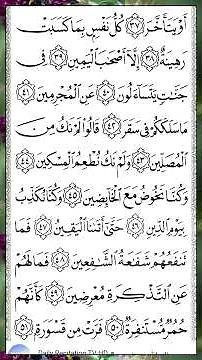 أَوْ يَتَأَخَّرَ ﴿٣٧﴾ كُلُّ نَفْسٍۭ بِمَا كَسَبَتْ
رَهِينَةٌ ﴿٣٨﴾ إِلَّآ أَصْحَٰبَ ٱلْيَمِينِ ﴿٣٩﴾ فِى
جَنَّٰتٍ يَتَسَآءَلُونَ ﴿٤٠﴾ عَنِ ٱلْمُجْرِمِينَ ﴿٤١﴾
مَا سَلَكَكُمْ فِى سَقَرَ ﴿٤٢﴾ قَالُوا۟ لَمْ نَكُ مِنَ
ٱلْمُصَلِّينَ ﴿٤٣﴾ وَلَمْ نَكُ نُطْعِمُ ٱلْمِسْكِينَ ﴿٤٤﴾
وَكُنَّا نَخُوضُ مَعَ ٱلْخَآئِضِينَ ﴿٤٥﴾ وَكُنَّا نُكَذِّبُ
بِيَوْمِ ٱلدِّينِ ﴿٤٦﴾ حَتَّىٰٓ أَتَىٰنَا ٱلْيَقِينُ ﴿٤٧﴾ فَمَا
تَنفَعُهُمْ شَفَٰعَةُ ٱلشَّٰفِعِينَ ﴿٤٨﴾ فَمَا لَهُمْ
عَنِ ٱلتَّذْكِرَةِ مُعْرِضِينَ ﴿٤٩﴾ كَأَنَّهُمْ
حُمُرٌ مُّسْتَنفِرَةٌ ﴿٥٠﴾ فَرَّتْ مِن قَسْوَرَةٍۭ ﴿٥١﴾
Daily Recitation TV HD